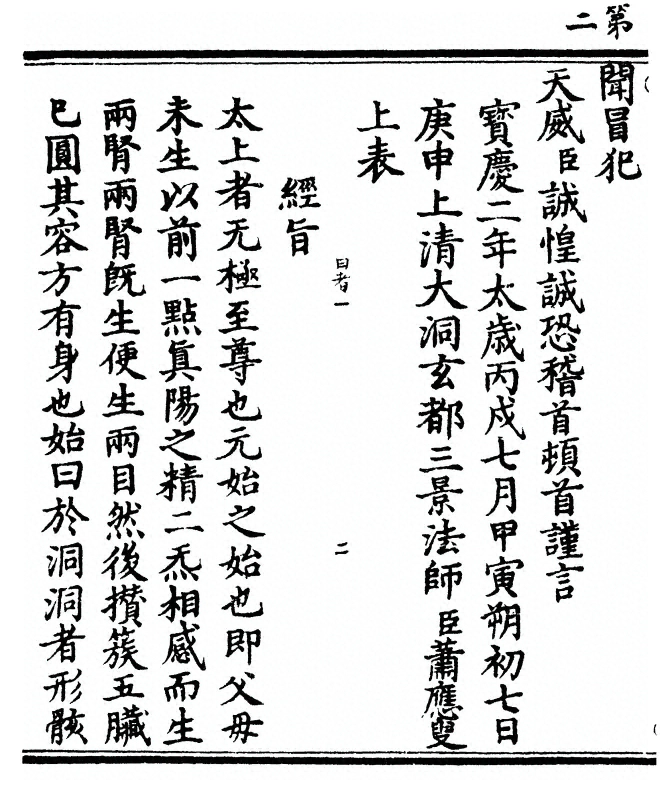 第二
聞冒犯
天威臣誠惶誠恐稽首頓首謹言
寶慶二年太歲丙戌七月甲寅朔初七日
庚申上清大洞玄都三景法師臣蕭應叟
上表
日者一
二
經旨
太上者无極至尊也元始之始也即父母
未生以前一點眞陽之精二炁相感而生
兩腎兩腎旣生便生兩目然後攅簇五臟
已圓其容方有身也始曰於洞洞者形骸